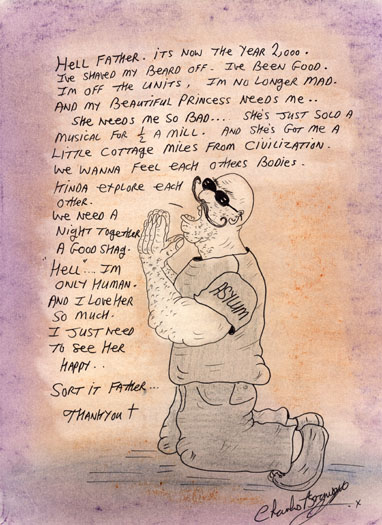 HELL FATHER. ITS NOW THE YEAR 2,000.
I'VE SHAVED MY BEARD OFF. I'VE BEEN GOOD.
I'M OFF THE UNITS, I'M NO LONGER MAD.
AND MY BEAUTIFUL PRINCESS NEEDS ME..
SHE NEEDS ME SO BAD.... SHE'S JUST SOLD A
MUSICAL FOR ½ A MILL. AND SHE'S GOT ME A
LITTLE COTTAGE MILES FROM CIVILIZATION.
WE WANNA FEEL EACH OTHERS BODIES.
KINDA EXPLORE EACH
OTHER.
WE NEED A
NIGHT TOGETHER
A GOOD SHAG.
"HELL"... I'M
ONLY HUMAN.
AND I LOVE HER
SO MUCH.
I JUST NEED
TO SEE HER
HAPPY..
SORT IT FATHER...
THANKYOU †
ASYLUM
Charlie Bronson
x